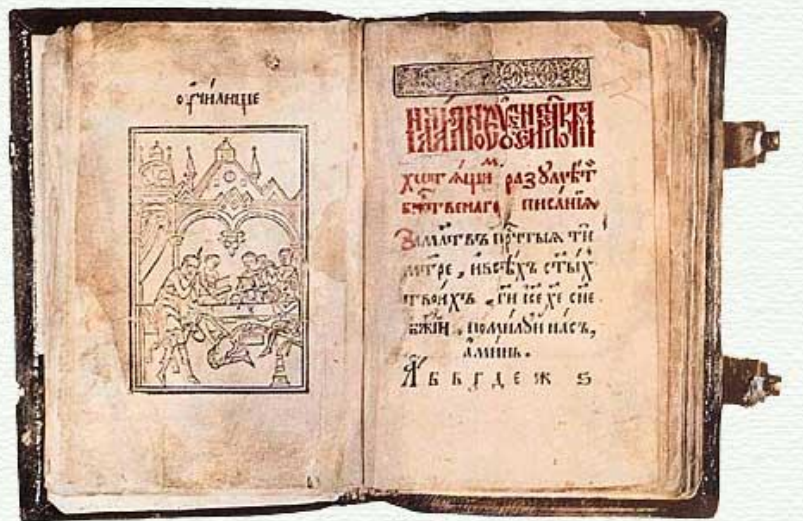 ѹчи́лище
хотѧ́щимъ разꙋмѣ́ти
бж҃твенагѡ писа́нїѧ
За мл҃твъ прⷭ҇тыѧ ти
мт҃ре, и всѣ́хъ ст҃ы́хъ
твои́хъ, гд҇и і҆се хе сн҃е
бж҃їи, поми́лꙋи на́съ,
а҆ми́нь.
А҆ б в г д е ж ѕ